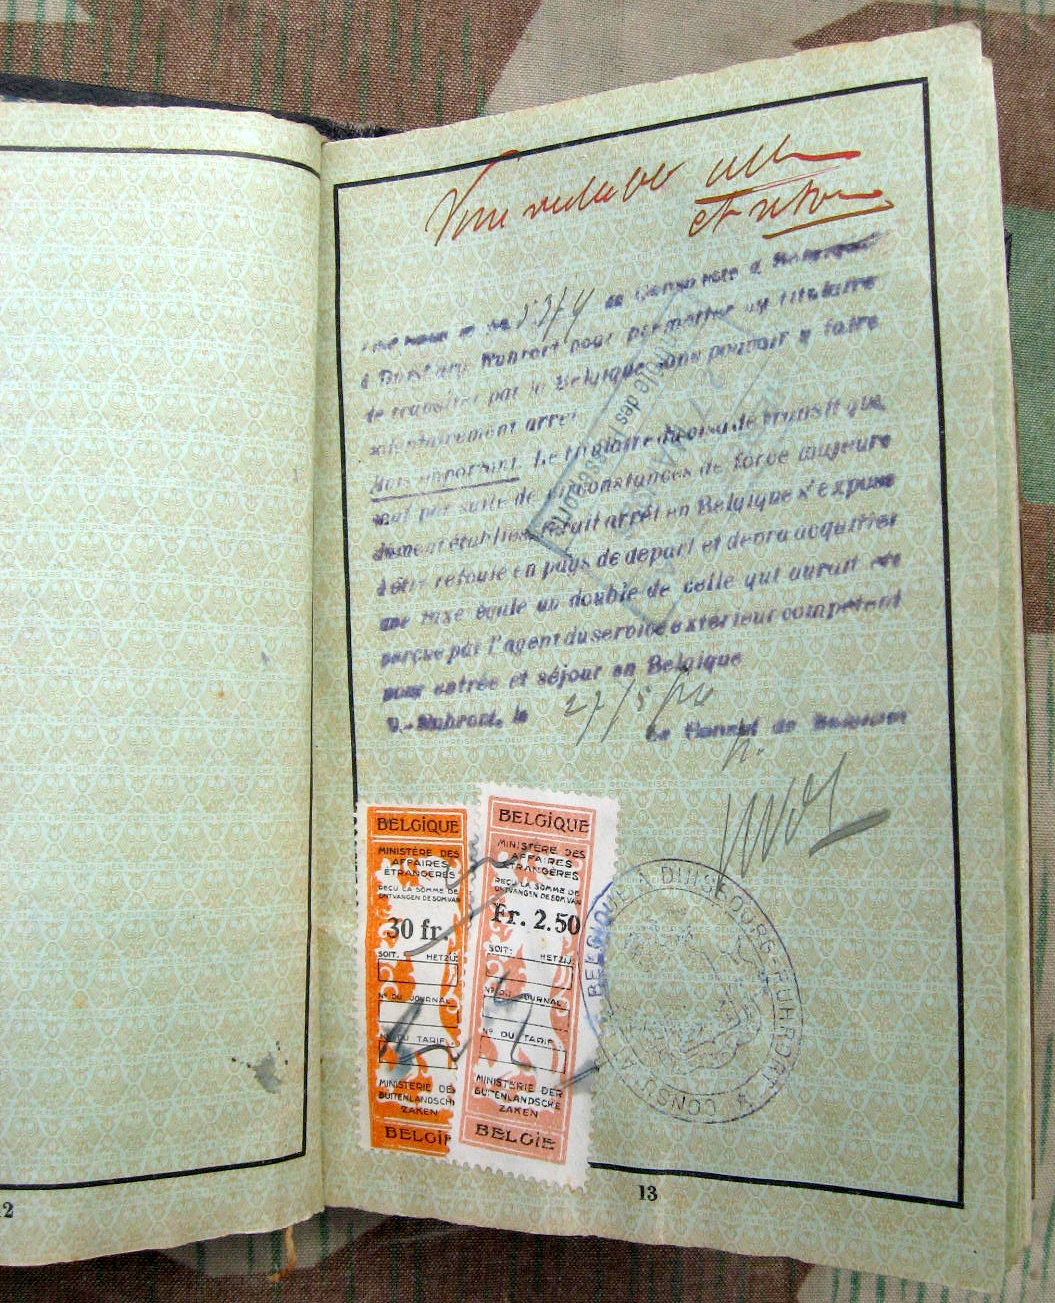 et retour
à Duisburg Ruhrort pour permettre au titulaire
de transiter par la Belgique sans pouvoir y faire
volontairement arrêt
Avis important. Le titulaire du visa de transit qui,
sauf par suite de circonstances de force majeure
dûment établies, ferait arrêt en Belgique s'expose
à être refoulé en pays de départ et devra acquitter
une taxe égale au double de celle qui aurait été
perçue par l'agent du service extérieur compétent
pour entrée et séjour en Belgique
D.-Ruhrort, le 27/5/
Le Consul de Belgique
BELGIQUE
MINISTÈRE DES
AFFAIRES
ÉTRANGÈRES
REÇU LA SOMME DE
ONTVANGEN DE SOM VAN
30 fr.
SOIT: HETZIJ:
Nº DU JOURNAL
Nº DU TARIF
MINISTERIE DE
BUITENLANDSCH
ZAKEN
BELGI
BELGIQUE
MINISTÈRE DES
AFFAIRES
ÉTRANGÈRES
REÇU LA SOMME DE
ONTVANGEN DE SOM VAN
Fr. 2.50
SOIT: HETZIJ:
Nº DU JOURNAL
Nº DU TARIF
MINISTERIE DER
BUITENLANDSCHE
ZAKEN
BELGIE
BELGIQUE À DUISBOURG-RUHRORT
CONSUL
12
13